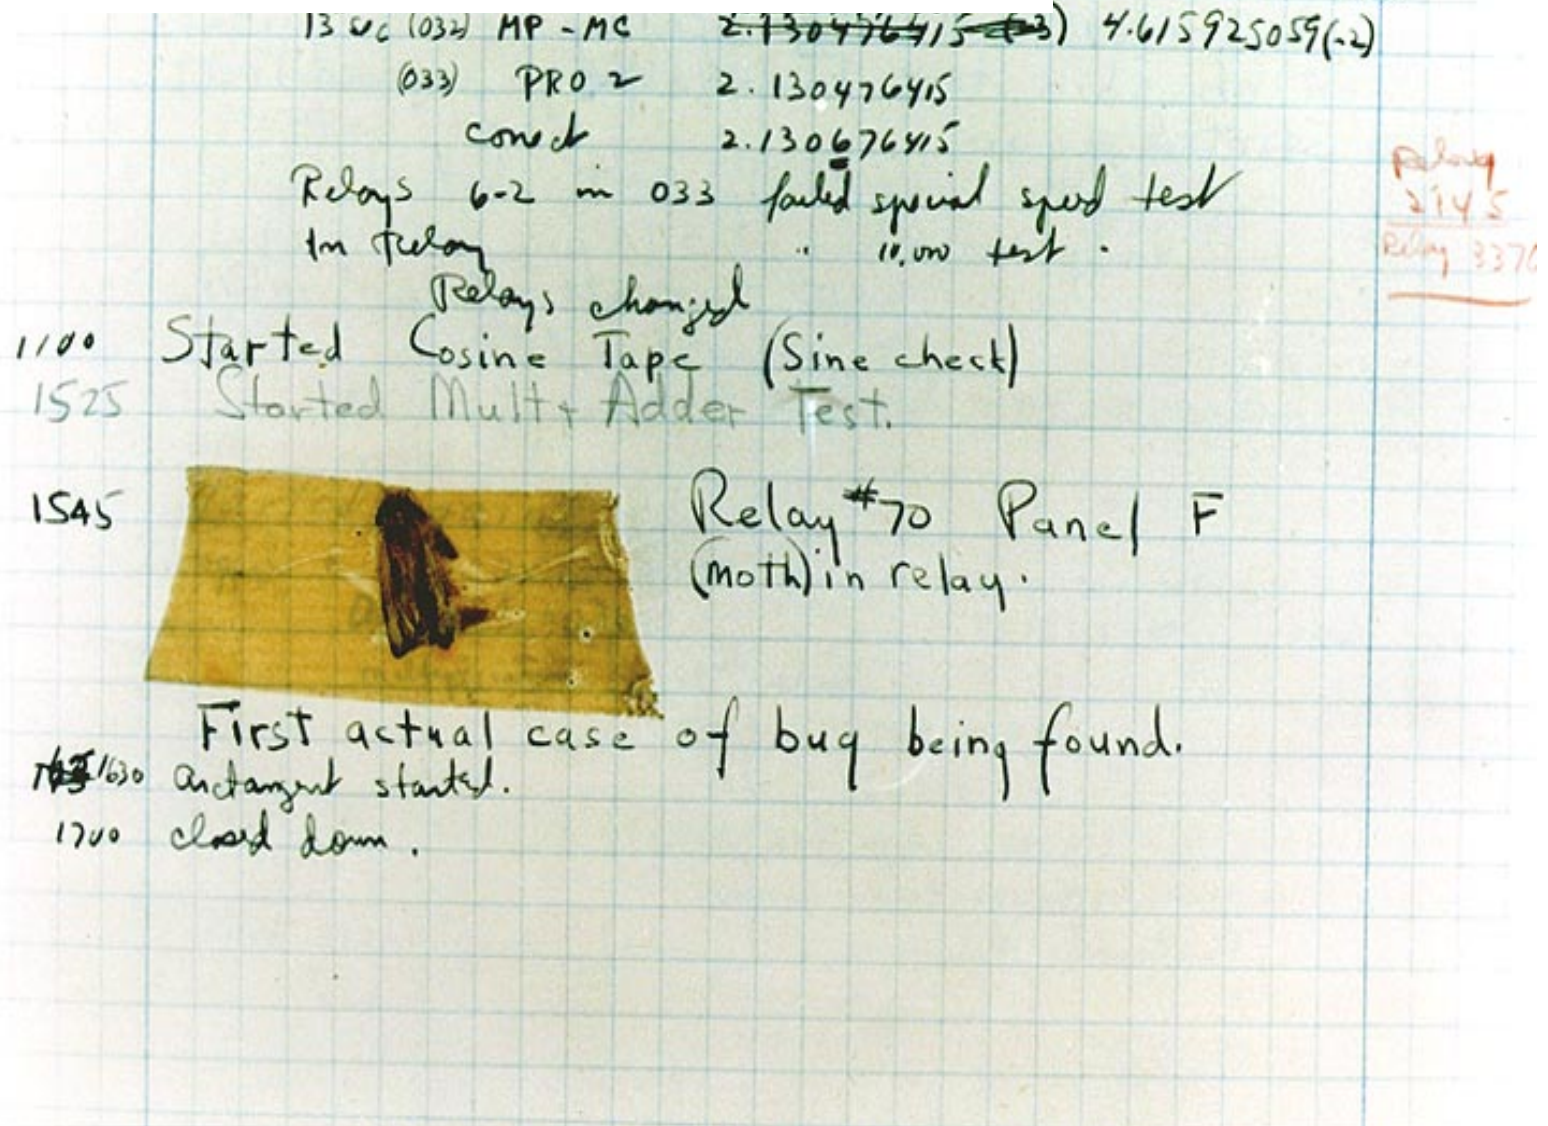 13 uc (032) MP - MC 2.130476415 (-3) 4.615925059(-2)
(033) PRO 2 2.130476415
conect 2.130676415
Relays 6-2 in 033 failed special speed test
In Relay " 10,000 test .
Relays changed
Relay
2145
Relay 3370
1100 Started Cosine Tape (Sine check)
1525 Started Mult + Adder Test.
1545 Relay #70 Panel F
(moth) in relay.
First actual case of bug being found.
1630 arctangent started.
1700 closed down.